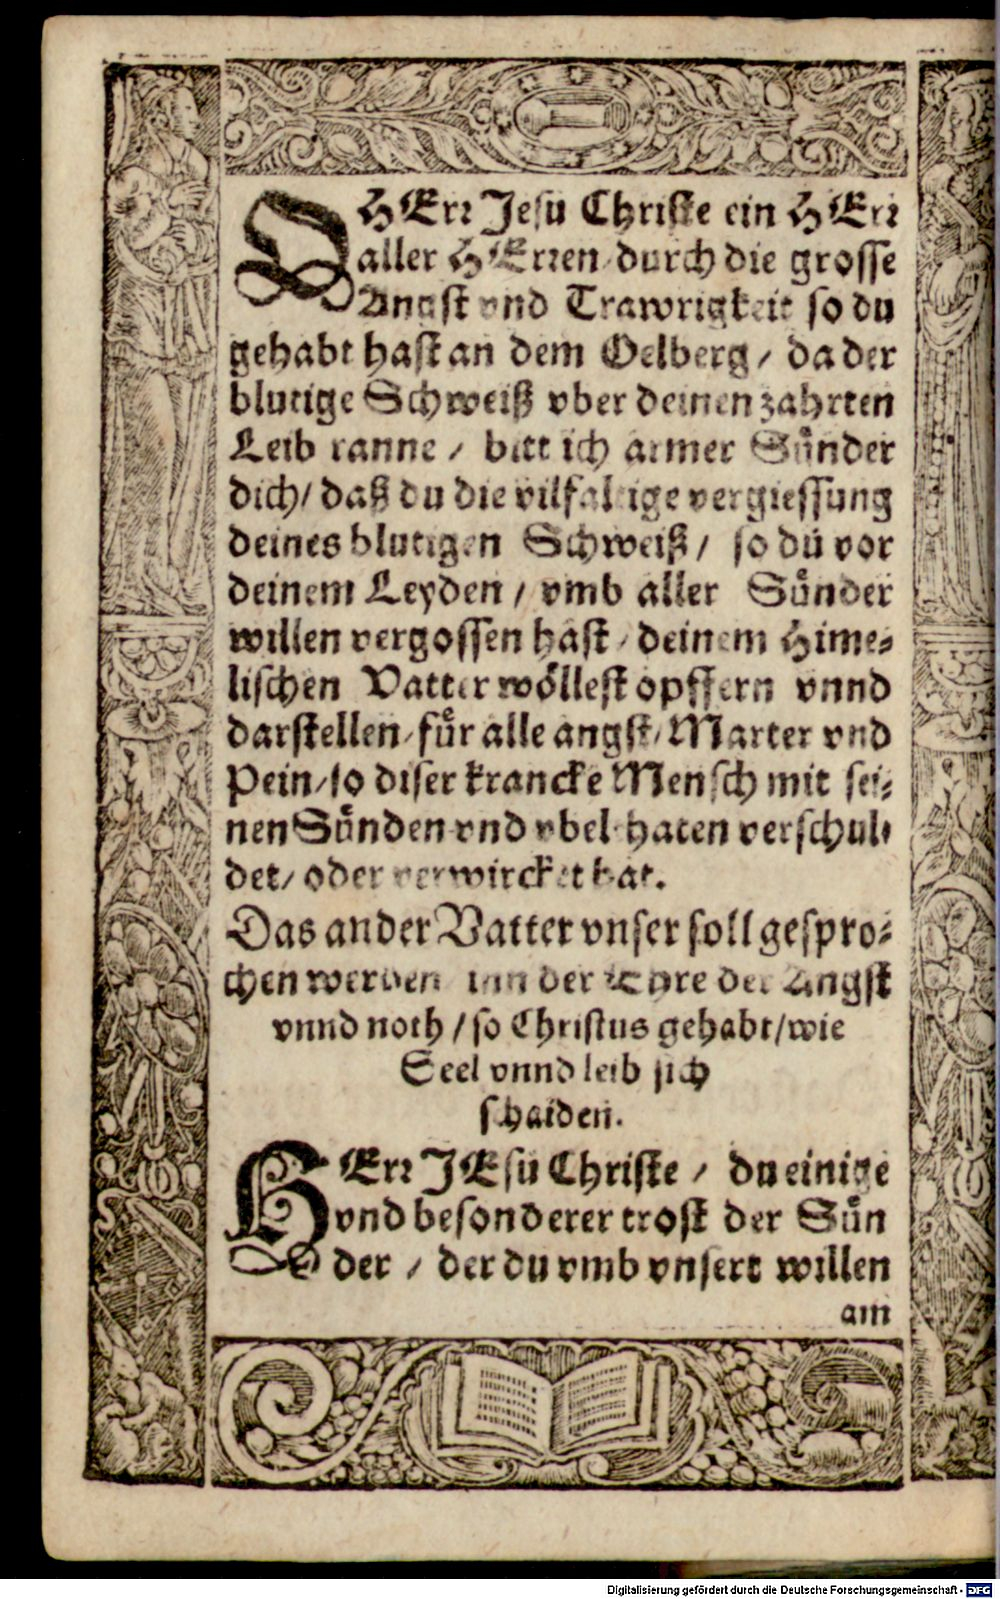 O HErr Jesu Christe ein HErr
aller HErren durch die grosse
Angst vnd Trawrigkeit so du
gehabt hast an dem Oelberg / da der
blutige Schweiß vber deinen zahrten
Leib ranne / bitt ich armer Sünder
dich / daß du die vilfaltige vergiessung
deines blutigen Schweiß / so du vor
deinem Leyden / vmb aller Sünder
willen vergossen hast / deinem Hime-
lischen Vatter wöllest opffern vnnd
darstellen / für alle angst / Marter vnd
Pein / so diser krancke Mensch mit sei-
nen Sünden vnd vbelthaten verschul-
det / oder verwircket hat.
Das ander Vatter vnser soll gespro-
chen werden inn der Ehre der Angst
vnnd noth / so Christus gehabt / wie
Seel vnnd leib sich
schaiden.
HErr JEsu Christe / du einige
vnd besonderer trost der Sün
der / der du vmb vnsert willen
am
Digitalisierung gefördert durch die Deutsche Forschungsgemeinschaft - DFG